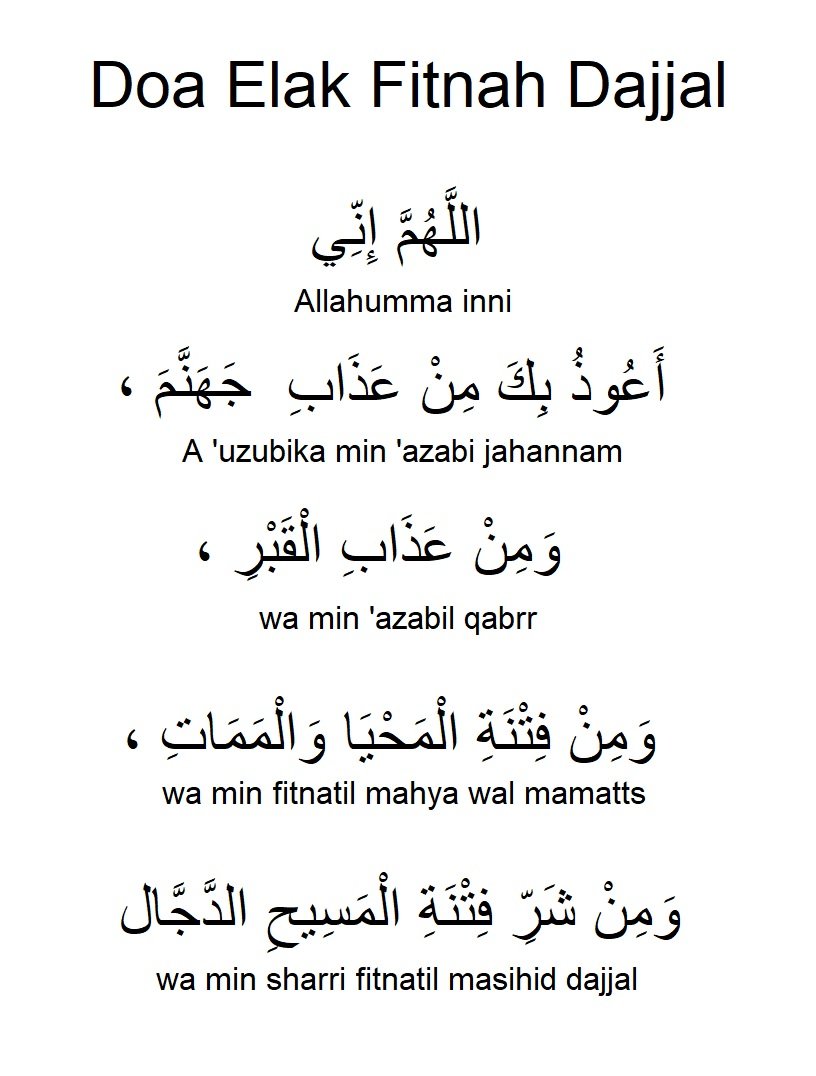 Doa Elak Fitnah Dajjal
اللَّهُمَّ إِنِّي
Allahumma inni
أَعُوذُ بِكَ مِنْ عَذَابِ جَهَنَّمَ ،
A 'uzubika min 'azabi jahannam
وَمِنْ عَذَابِ الْقَبْرِ ،
wa min 'azabil qabrr
وَمِنْ فِتْنَةِ الْمَحْيَا وَالْمَمَاتِ ،
wa min fitnatil mahya wal mamatts
وَمِنْ شَرِّ فِتْنَةِ الْمَسِيحِ الدَّجَّال
wa min sharri fitnatil masihid dajjal